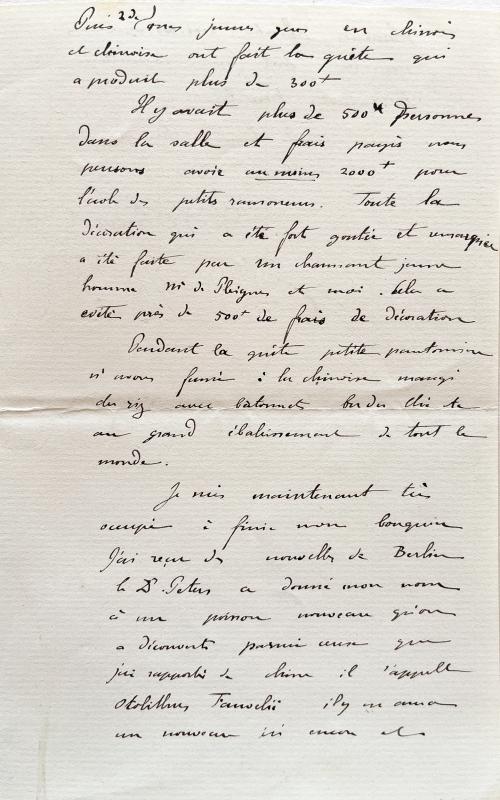 Puis 2 de ces jeunes gens en chinois
et chinoise ont fait la quête qui
a produit plus de 300+
Il y avait plus de 500 personnes
dans la salle et frais payés nous
pensons avoir au moins 2000+ pour
l'école des petits ramoneurs. Toute la
décoration qui a été fort goutée et remarquée
a été faite par un charmant jeune
homme Mr de et moi. Cela a
coûté près de 500+ de frais de décoration
Pendant la quête petite pantomime
avons fumé à la chinoise mangé
du riz avec batonnets bu du thé &c
au grand ébahissement de tout le
monde.
Je suis maintenant très
occupé à finir mon bouquin
J'ai reçu des nouvelles de Berlin
le Dr Peters a donné mon nom
à un poisson nouveau qu'on
a découvert parmi ceux que
j'ai rapporté de chine il s'appelle
Otolithus Fauvelii il y en aura
un nouveau ici encore et